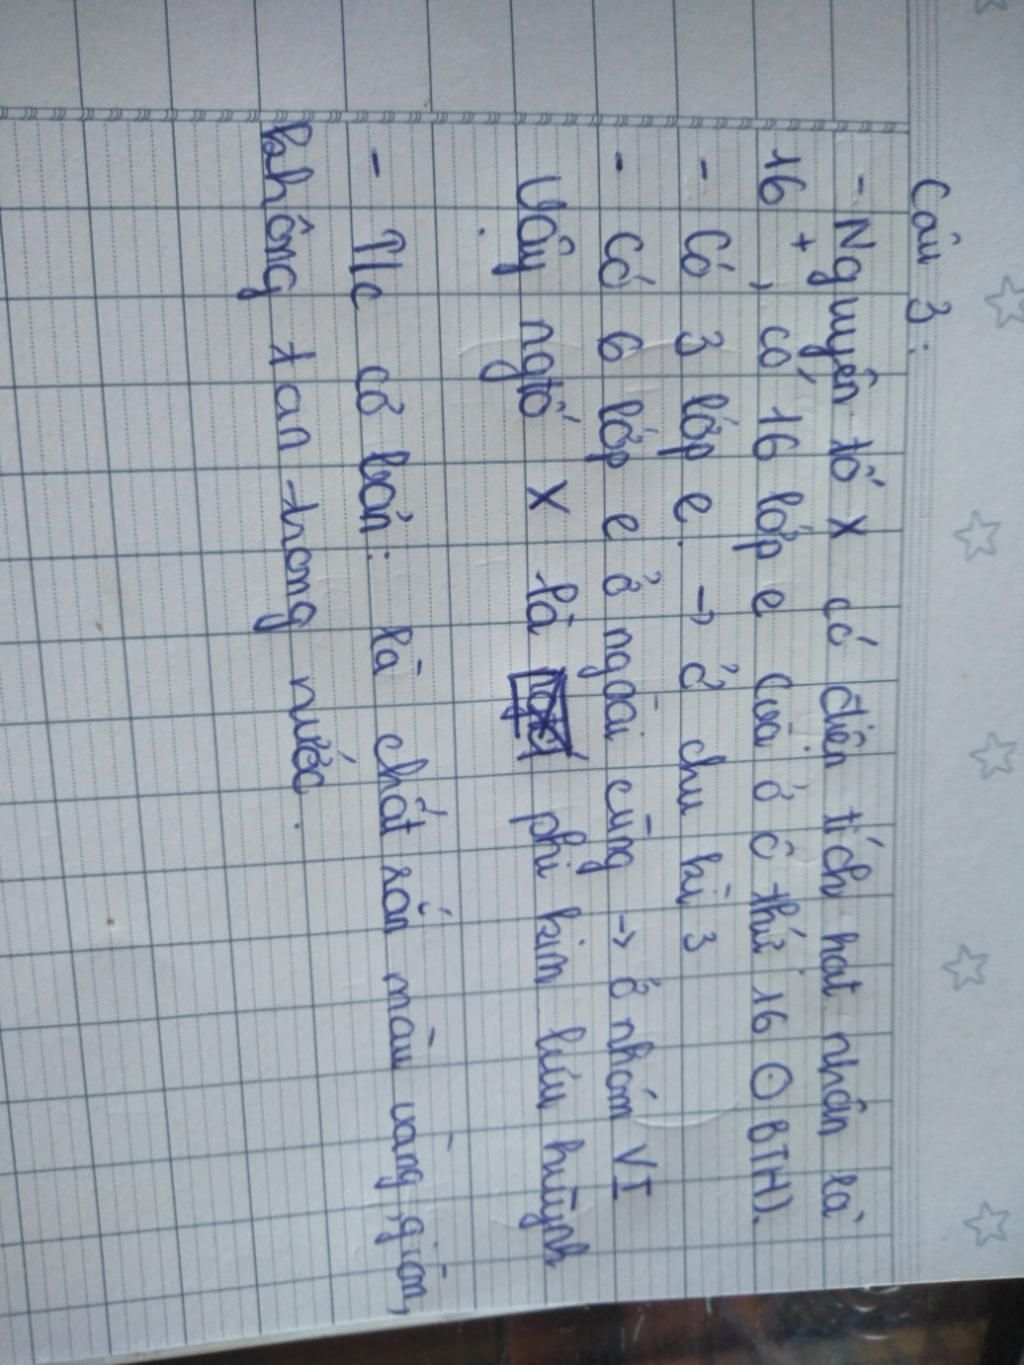 Câu 3:
- Nguyên tố X có điện tích hạt nhân là
16+, có 16 lớp e của ở ô thứ 16 (BTH).
- Có 3 lớp e. → ở chu kì 3
- Có 6 lớp e ở ngoài cùng → ở nhóm VI
Vậy ngtố X là phi kim lưu huỳnh
- T/c cơ bản: là chất rắn màu vàng, giòn,
không tan trong nước.